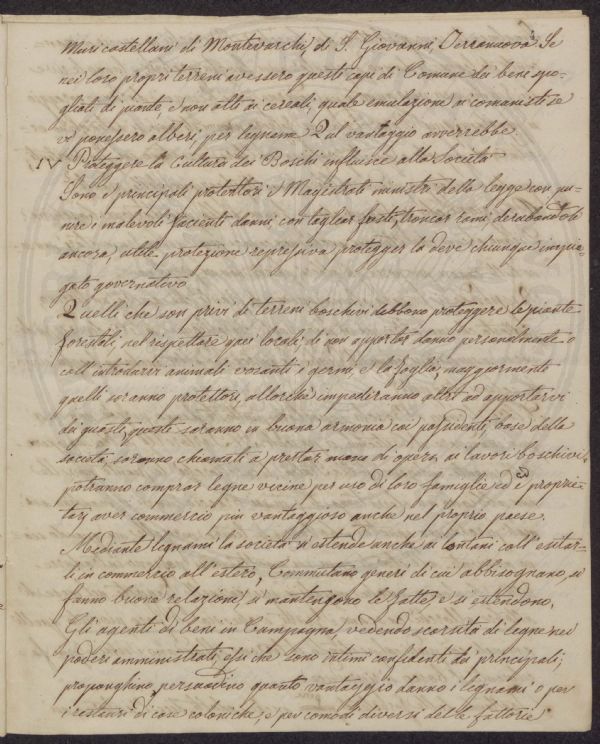 Muricastellani di Montevarchi, di S. Giovanni, Terranuova. Se
nei loro propri terreni avessero questi capi di Comune dei beni spo-
gliati di piante, e non atti ai cereali, quale emulazione ai comunisti se
vi ponessero alberi per legname Qual vantaggio avverrebbe
IV Proteggere la Cultura dei Boschi influisce alla Società
Sono i principali protettori i Magistrati ministri della legge con pu-
nire i malevoli facienti danni con tagliar fusti, troncar rami, derubandoli
ancora, utile protezione repressiva protegger la deve chiunque impie-
gato governativo
Quelli che son privi di terreni boschivi debbono proteggere le piante
forestali nel rispettare quei locali, di non apportar danno personalmente o
coll'introdurvi animali i germi, e la foglia; maggiormente
quelli saranno protettori, allorchè impediranno altri ad apportarvi
dei guasti, queste saranno in buona armonia coi possidenti, base della
società; saranno chiamati a prestar mano di opera ai lavori boschivi
potranno comprar legne vicine per uso di loro famiglie ed i proprie-
tarj aver commercio più vantaggioso anche nel proprio paese.
Mediante legnami la società si estende anche ai lontani coll'esitar-
li in commercio all'estero, Commutano generi di cui abbisognano, si
fanno buone relazioni, si mantengono le fatte, e si estendono.
Gli agenti di beni in Campagna vedendo scarsità di legne nei
poderi amministrati, essi che sono intimi confidenti dei principali,
proponghino, persuadino quanto vantaggio danno i legnami o per
i restauri di case coloniche, e per comodi diversi delle fattorie